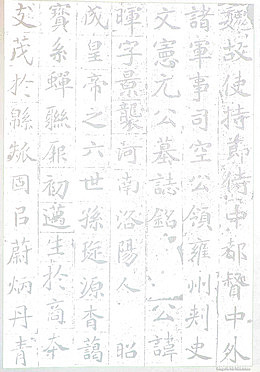 魏故使持節侍中都督中外
諸軍事司空公領雍州刺史
文憲元公墓誌銘 公諱
暉字景襲河南洛陽人 昭
成皇帝之六世孫珽源杳藹
寶系蟬聯厥初邁生於商夲
支茂於緜瓞固㠯蔚炳丹青